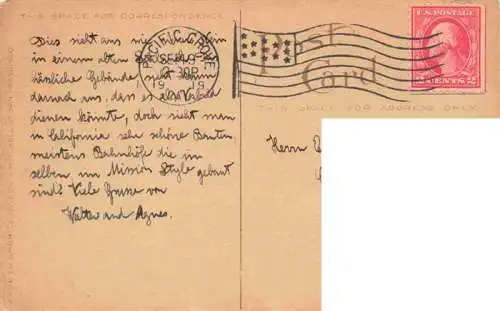 THIS SPACE FOR CORRESPONDENCE
Dies sieht aus wie
in einem alten
hässliche Gebäude sieht
darnach aus, dass es als
dienen könnte, doch sieht man
in California sehr schöne Bauten,
meistens Bahnhöfe die im
selben, im Mission Style gebaut
sind! Viele Grüsse von
Walter and Agnes.
PACIFIC GROVE
SEP
2 30 P
19 19
CAL.
Post
Card
U.S. POSTAGE
2 CENTS 2
THIS SPACE FOR ADDRESS ONLY
Herrn